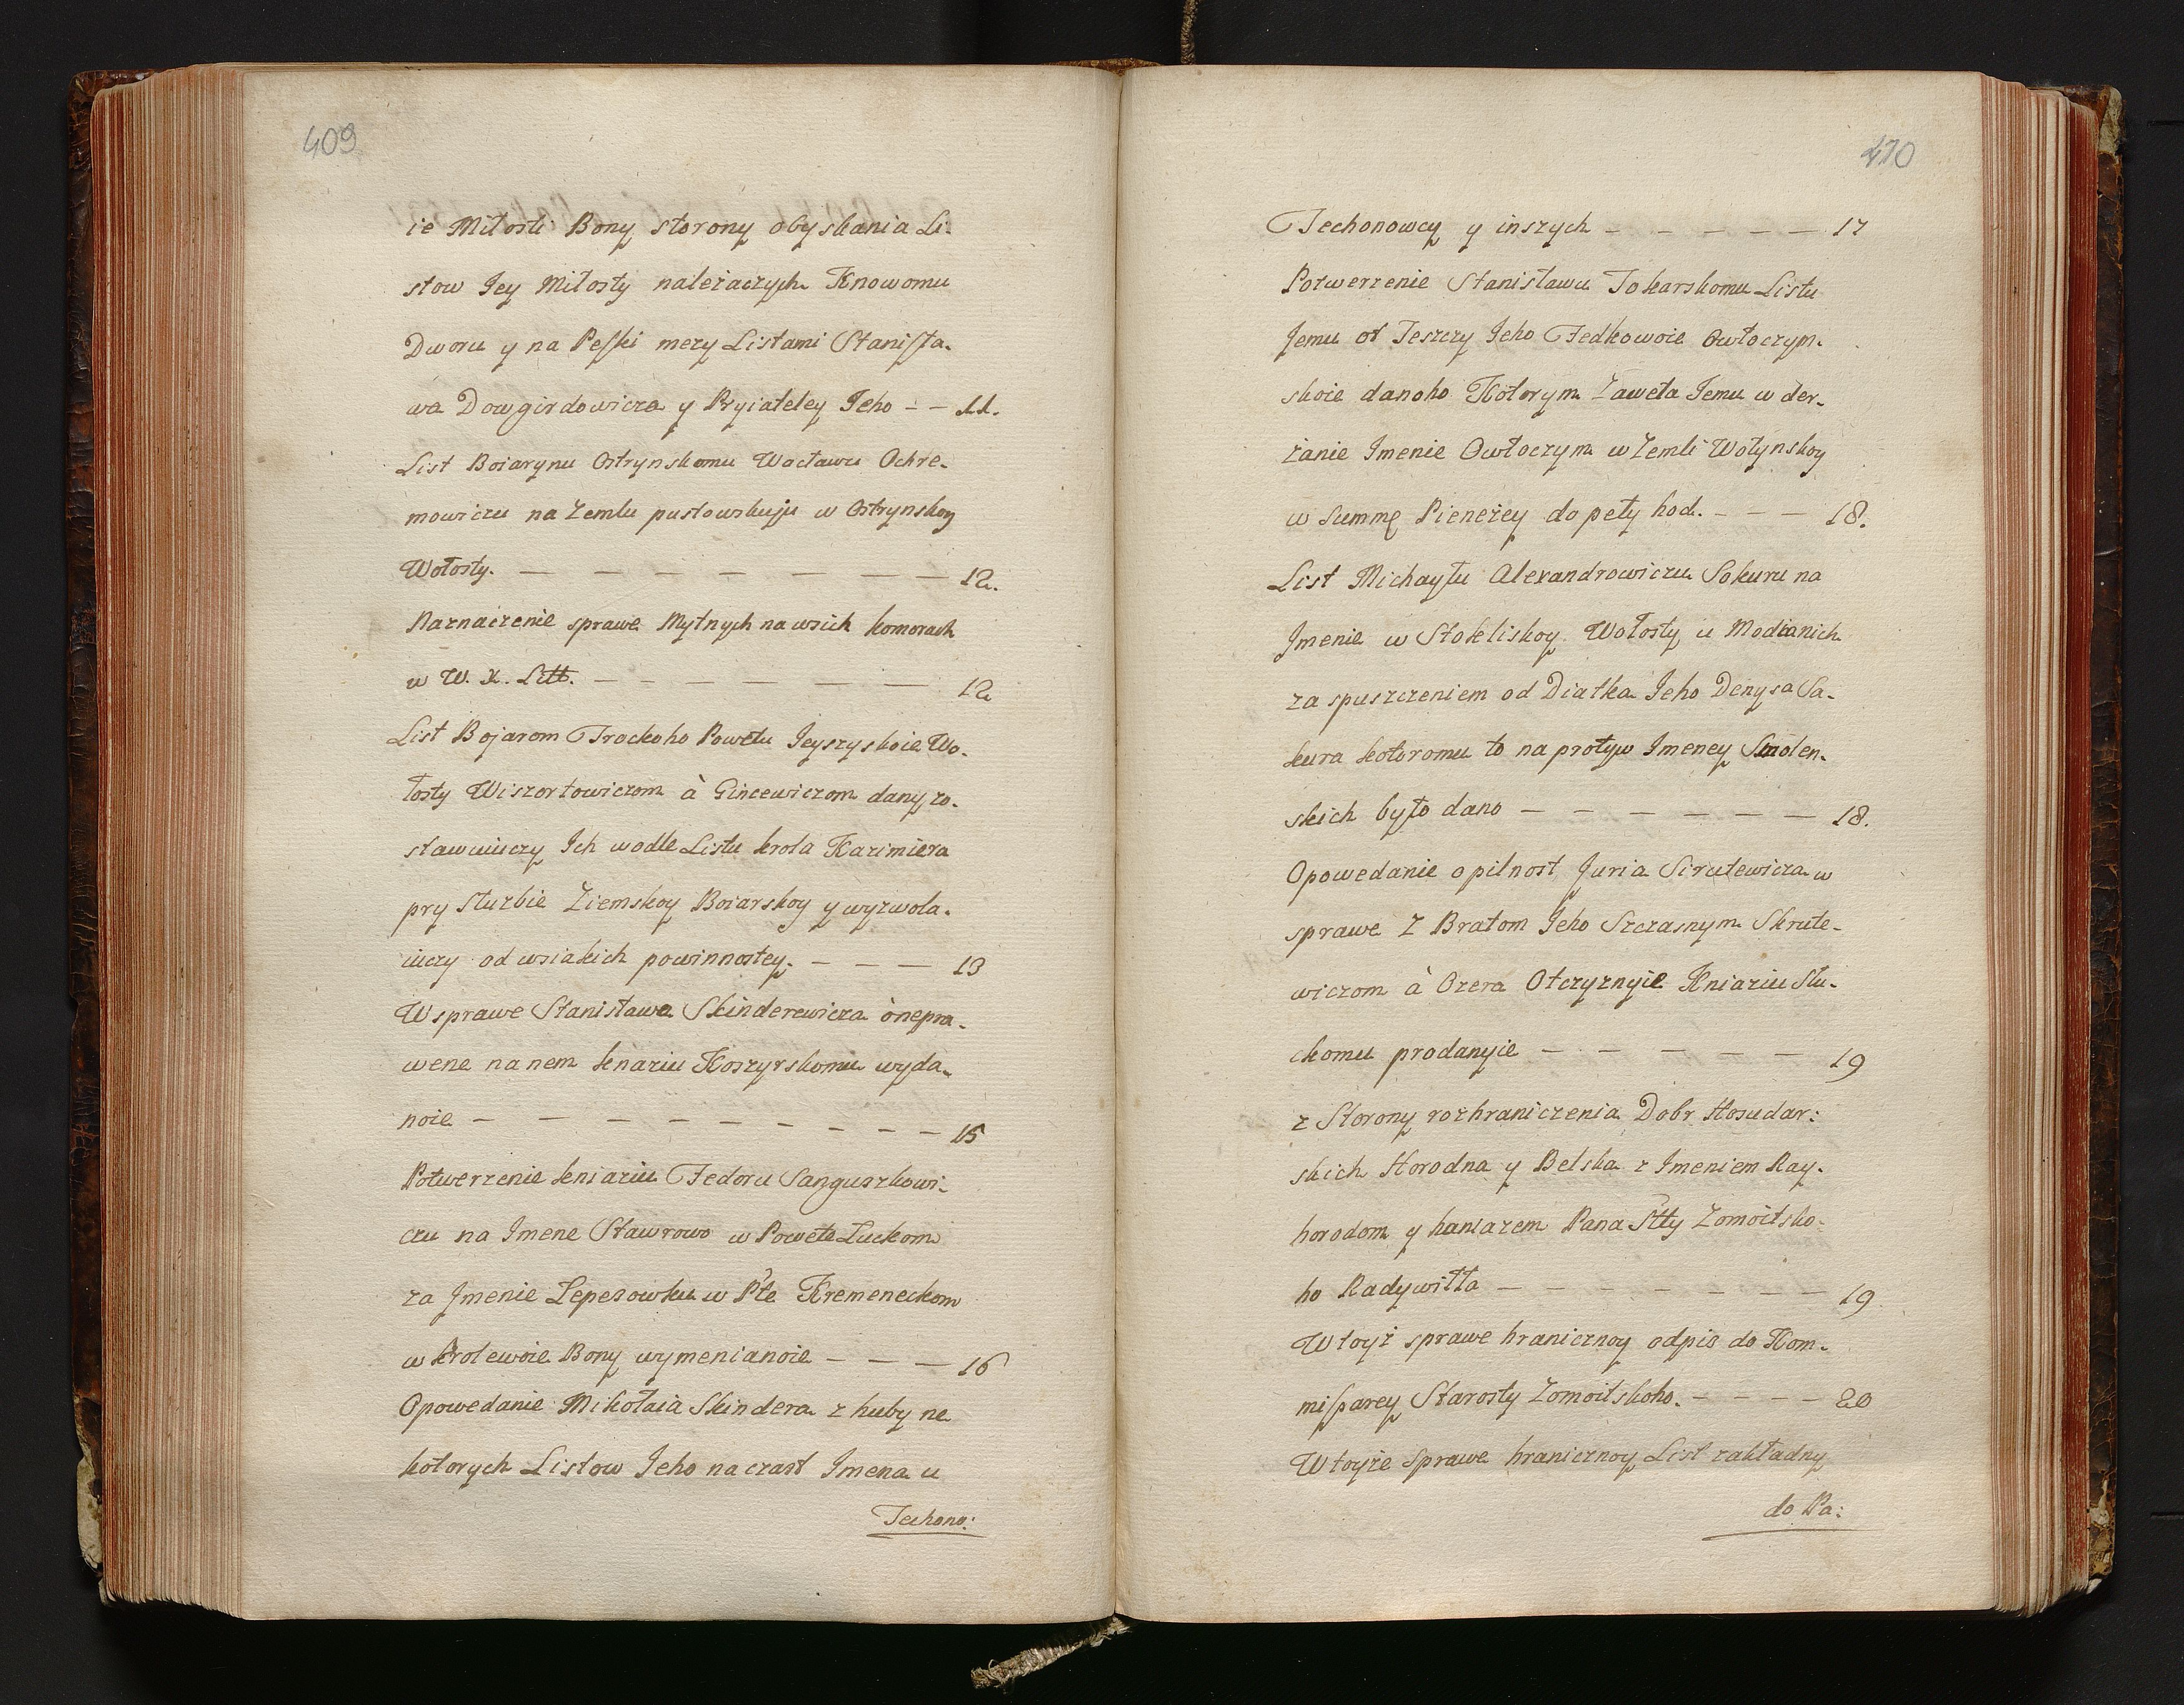 409
ie Miłosti Bony storony obyskania Li-
stow Jey Miłosty należaczych Knowomu
Dworu y na Peski mezy Listami Stanisła-
wa Dowgirdowicza y Pryiateley Jeho - - 11.
List Boiarynu Ostrynskomu Wacławu Ochre-
mowiczu na Zemlu pustowskuju w Ostrynskoy
Wołosty. - - - - - - - 12.
Naznaczenie sprawe Mytnych na wsich komorach
w W. X. Litt. - - - - - - 12
List Bojarom Trockoho Powetu Jeyszyskoie Wo-
łosty Wiszortowiczom à Gincewiczom dany zo-
stawuiuczy Ich wodle Listu krola Kazimiera
pry służbie Ziemskoy Boiarskoy y wyzwola-
iuczy od wsiakich powinnostey. - - - 13
W sprawe Stanisława Skinderewicza ò nepra-
wene na nem kniaziu Koszyrskomu wyda-
noie - - - - - - - - - 15
Potwerzenie kniaziu Fedoru Sanguszkowi-
czu na Imene Stawrowo w Powete Łuckom
za Jmenie Lepesowku w Pte Kremeneckom
w krolewoie Bony wymenianoie - - - 16
Opowedanie Mikołaia Skindera z huby ne
kotorych Listow Jeho na czast Imena u
Techono:
410
Techonowcy y inszych - - - - - 17
Potwerzenie Stanisławu Tokarskomu Listu
Jemu ot Teszczy Jeho Fedkowoie Owłoczym-
skoie danoho Kotorym Zaweła Jemu w der-
żanie Imenie Owłoczym w Zemli Wołynskoy
w Summę Pieneżey do pety hod. - - - 18.
List Michayłu Alexandrowiczu Sokuru na
Jmenie w Stokliskoy Wołosty u Modianich
za spuszczeniem od Diatka Jeho Denysa Sa-
kura kotoromu to na protyw Imeney Smolen-
skich było dano - - - - - - 18.
Opowedanie o pilnost Juria Sirutewicza w
sprawe Z Bratom Jeho Szczasnym Skrute-
wiczom à Ozera Otczyznyie Kniaziu Słu-
ckomu prodanyie - - - - - 19
z Storony rozhraniczenia Dobr Hosudar:
skich Horodna y Belska z Imeniem Ray-
horodom y haniazem Pana Stty Zomoitsko-
ho Radywiłła - - - - - - - 19
W toyż sprawe hranicznoy odpis do Kom-
misarey Starosty Zomoitskoho. - - - - 20
W toyże sprawe hranicznoy List zakładny
do Pa: